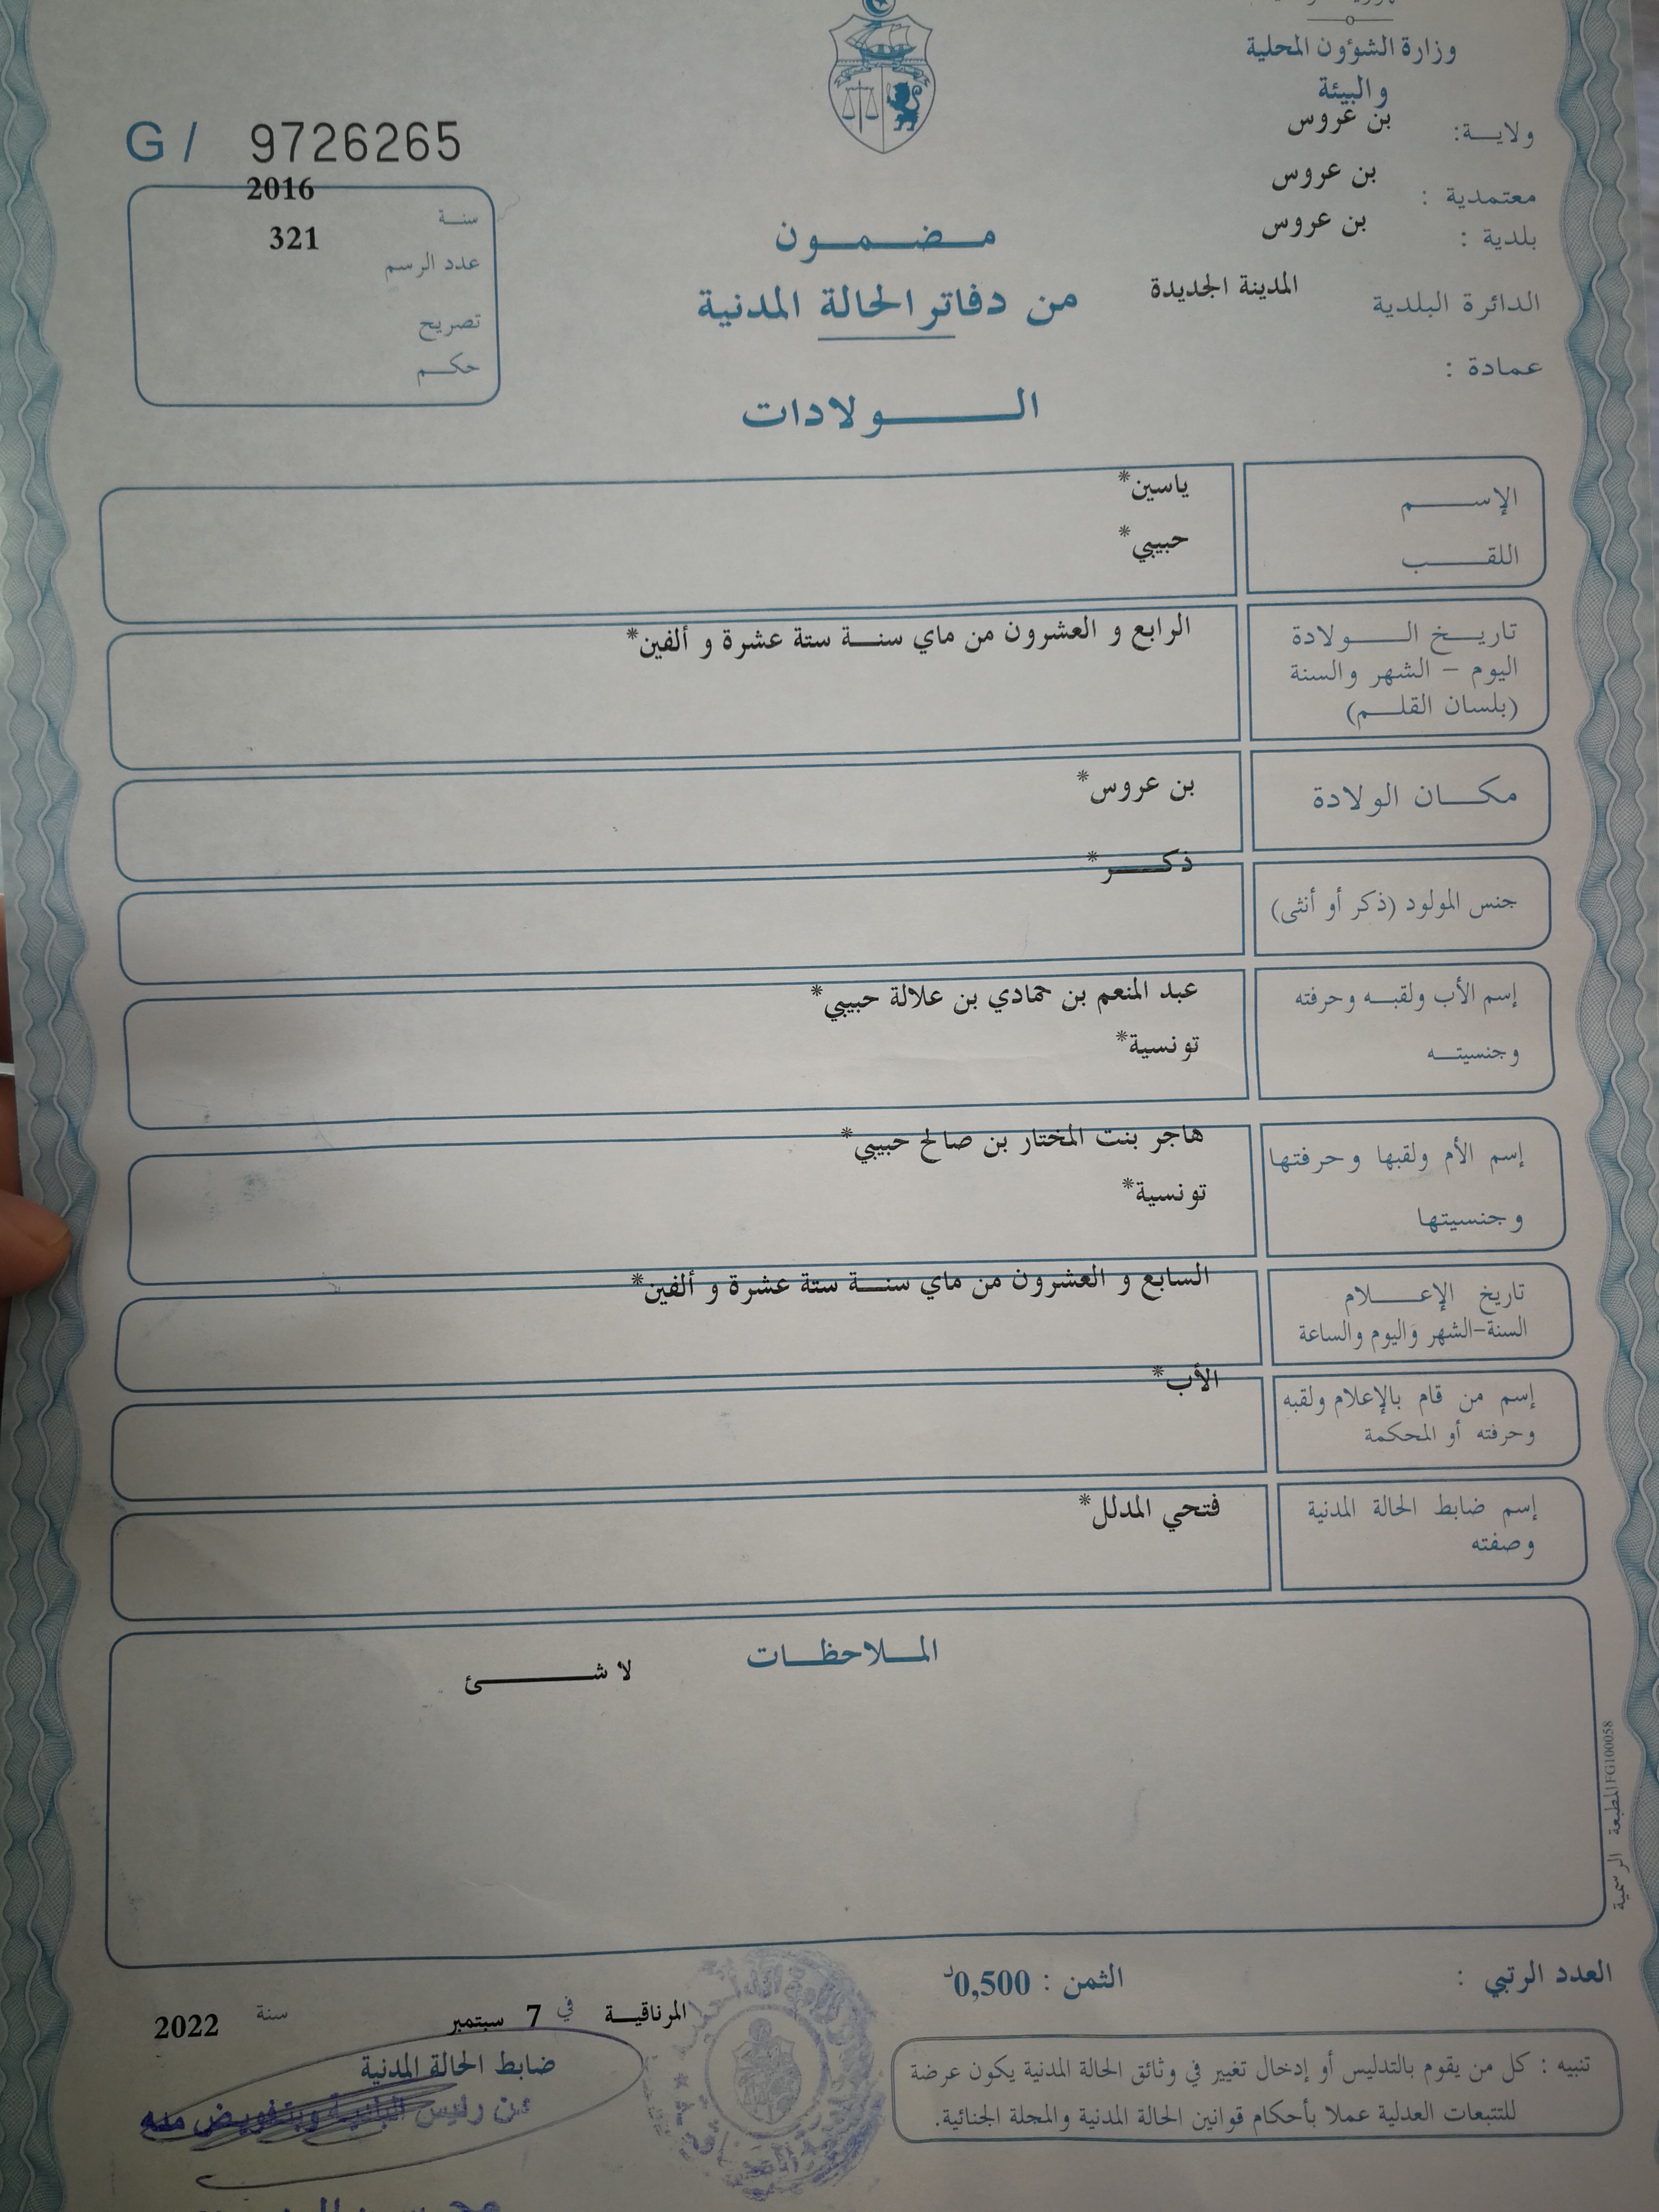 وزارة الشؤون المحلية
والبيئة
ولايـــة: بن عروس
معتمدية : بن عروس
بلدية : بن عروس
الدائرة البلدية المدينة الجديدة
عمادة :
G / 9726265
سنــة 2016
عدد الرسم 321
تصريح
حكـــم
مـــضـــمـــون
من دفاتر الحالة المدنية
الـــــــولادات
الإســــــم ياسين*
اللقـــــب حبيبي*
تاريـــخ الـــــولادة الرابع و العشرون من ماي سنـــة ستة عشرة و ألفين*
اليوم – الشهر والسنة
(بلسان القلـــم)
مكـــان الولادة بن عروس*
جنس المولود (ذكر أو أنثى) ذكـــــر*
إسم الأب ولقبـــه وحرفته عبد المنعم بن حمادي بن علالة حبيبي*
وجنسيتـــه تونسية*
إسم الأم ولقبها وحرفتها هاجر بنت المختار بن صالح حبيبي*
وجنسيتها تونسية*
تاريخ الإعـــــلام السابع و العشرون من ماي سنـــة ستة عشرة و ألفين*
السنة-الشهر واليوم والساعة
إسم من قام بالإعلام ولقبه الأب*
وحرفته أو المحكمة
إسم ضابط الحالة المدنية فتحي المدلل*
وصفته
المـــلاحظـــات
لا شـــــــئ
المطبعة الرسمية FG100058
العدد الرتبي :
الثمن : 0,500د
المرناقيـــة في 7 سبتمبر سنة 2022
ضابط الحالة المدنية
عن رئيس البلدية وبتفويض منه
تنبيه : كل من يقوم بالتدليس أو إدخال تغيير في وثائق الحالة المدنية يكون عرضة
للتتبعات العدلية عملا بأحكام قوانين الحالة المدنية والمجلة الجنائية.